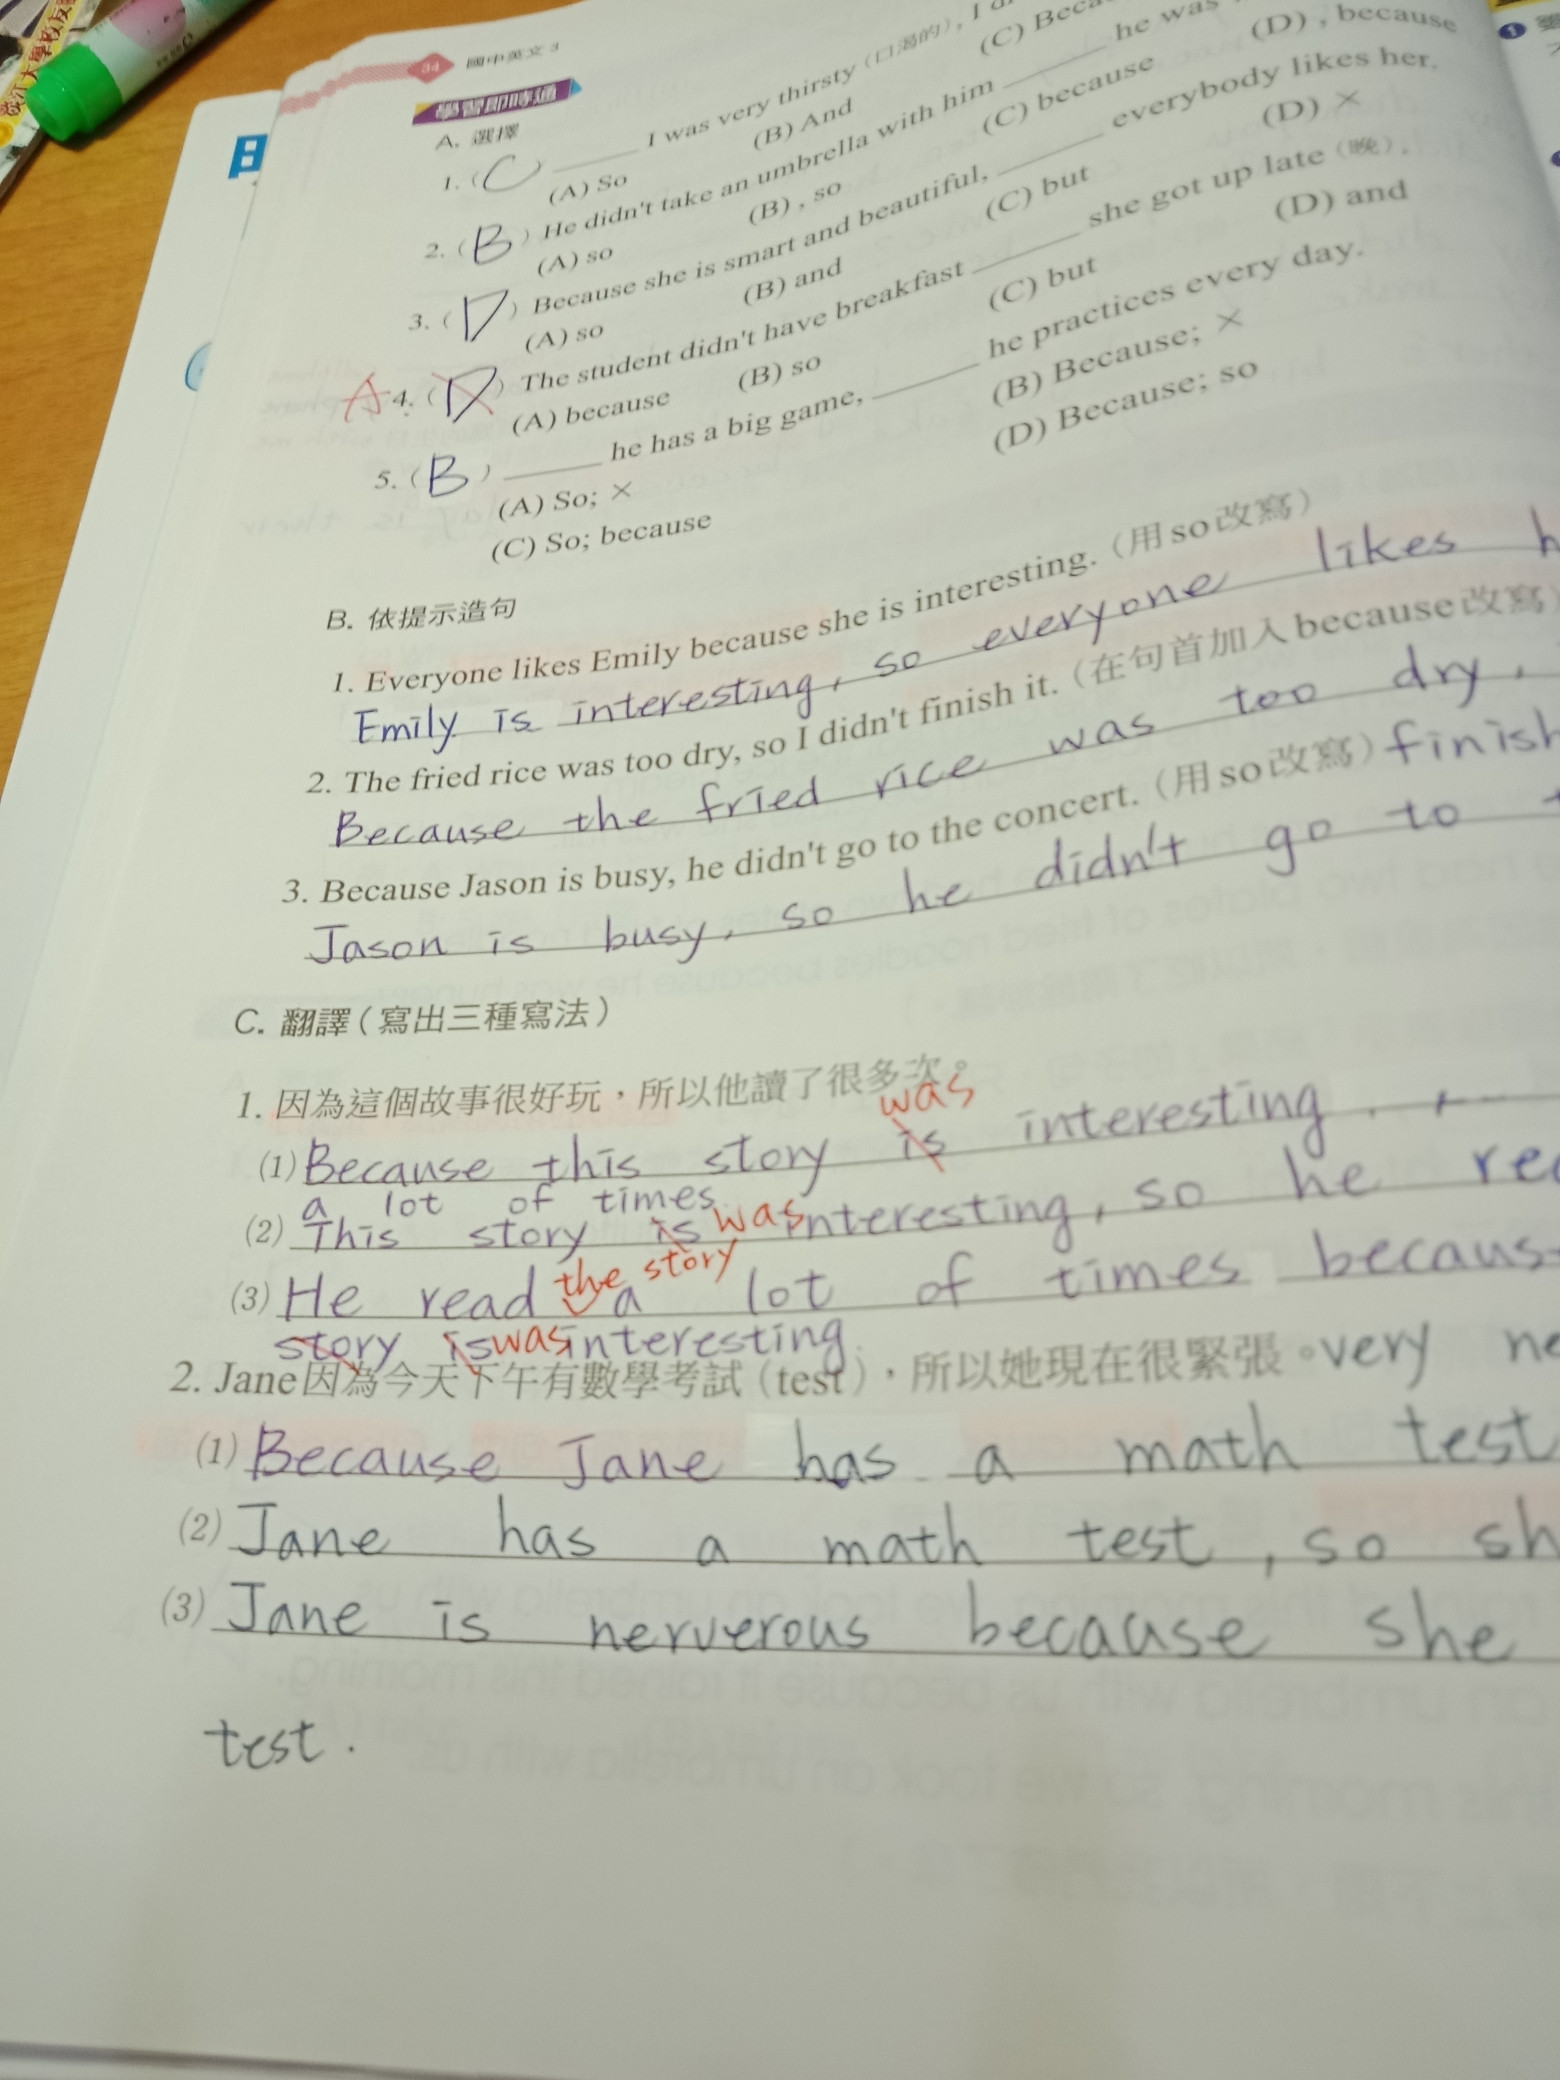 34 國中英文 3
學習即時通
A. 選擇
1. ( C ) ______ I was very thirsty (口渴的), I
(A) So (B) And (C)
2. ( B ) He didn't take an umbrella with him ______ he was
(A) so (B) , so (C) because (D) , because
3. ( D ) Because she is smart and beautiful, ______ everybody likes her.
(A) so (B) and (C) but (D) ×
A 4. ( D ) The student didn't have breakfast ______ she got up late (晚).
(A) because (B) so (C) but (D) and
5. ( B ) ______ he has a big game, ______ he practices every day.
(A) So; × (B) Because; ×
(C) So; because (D) Because; so
B. 依提示造句
1. Everyone likes Emily because she is interesting. (用 so 改寫)
Emily is interesting, so everyone likes
2. The fried rice was too dry, so I didn't finish it. (在句首加入 because 改寫)
Because the fried rice was too dry,
finish
3. Because Jason is busy, he didn't go to the concert. (用 so 改寫)
Jason is busy, so he didn't go to
C. 翻譯 (寫出三種寫法)
1. 因為這個故事很好玩，所以他讀了很多次。
was
(1) Because this story is interesting
a lot of times
(2) This story is was interesting, so he
the story
(3) He read a lot of times
story is was interesting.
2. Jane因為今天下午有數學考試 (test)，所以她現在很緊張。 very
(1) Because Jane has a math test
(2) Jane has a math test, so
(3) Jane is nerverous because she
test.